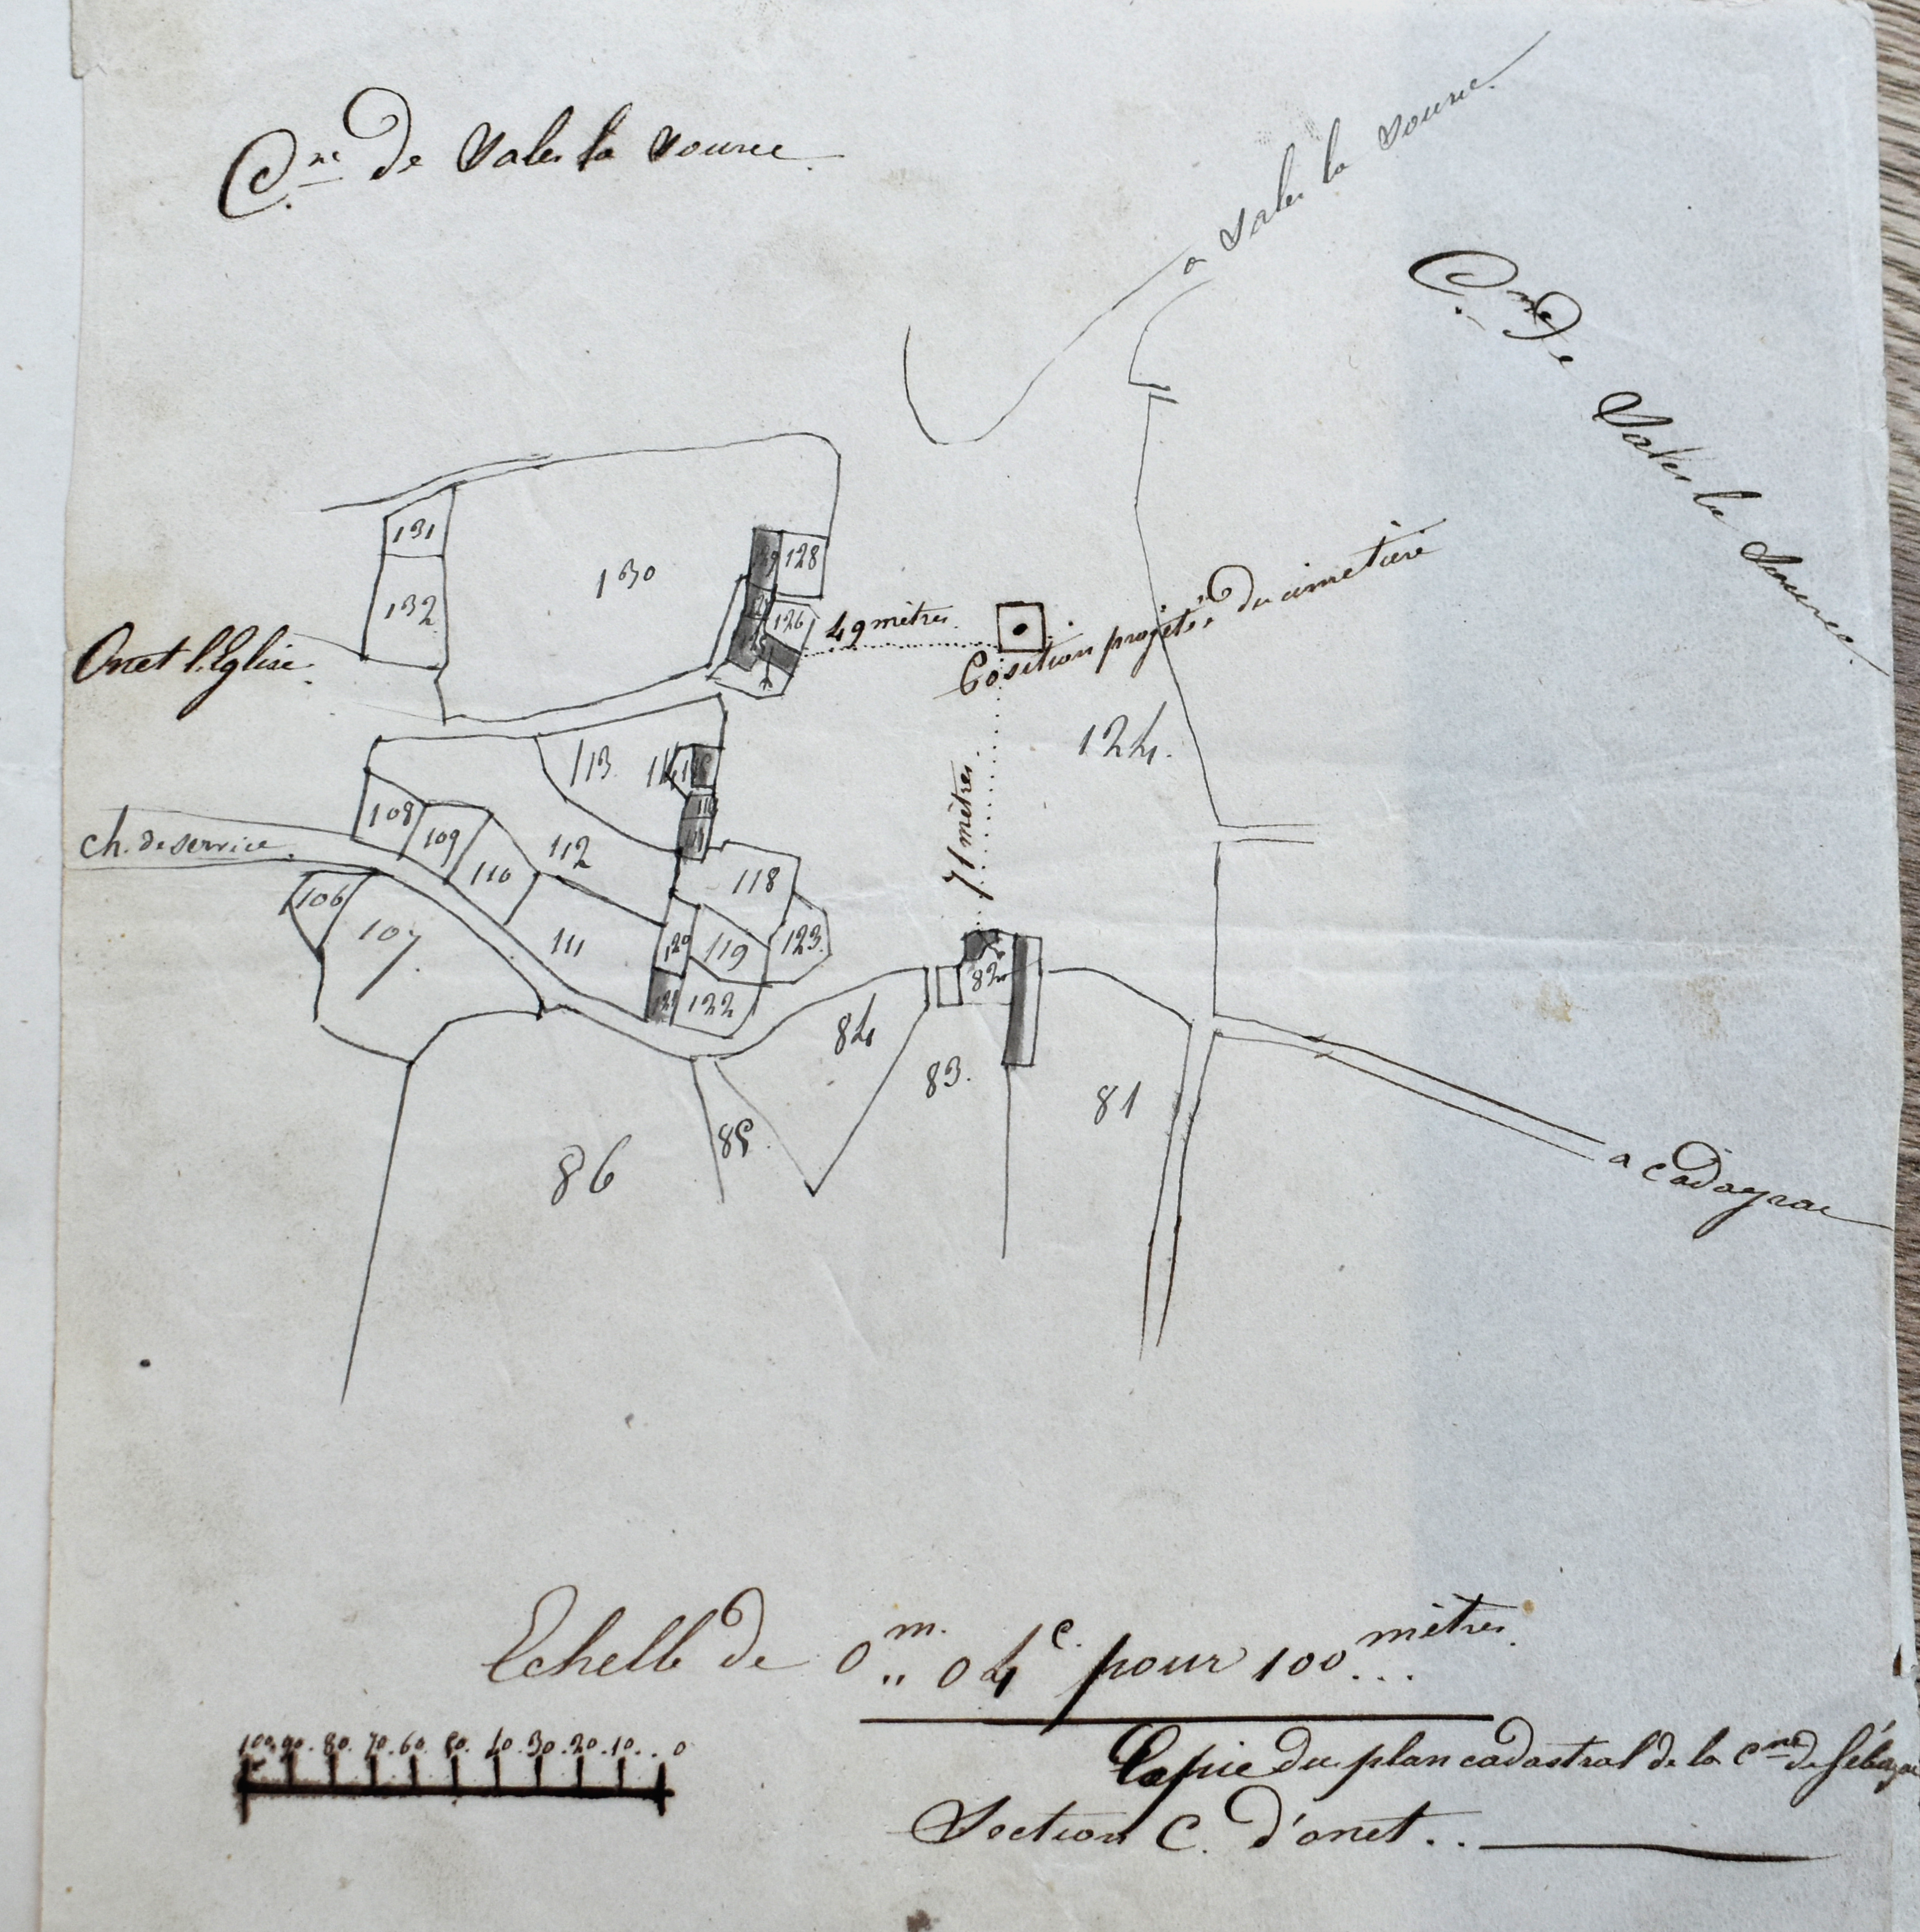 Cne de Sales la Source
a Sales la Source.
Cne de Sales la Source.
131
130
128
132
126
49 mètres.
Onet l'Eglise.
Position projetée du cimetière
124.
113
114
71 mètres.
108
109
112
ch. de service.
110
118
106
107
111
120
119
123
82
122
84
83.
81
85
86
a Cadayrac
Echelle de 0m.,,04c. pour 100 mètres...
100.90.80.70.60.50.40.30.20.10..0
Copie du plan cadastral de la Cne de Sébazac
Section C. d'onet..